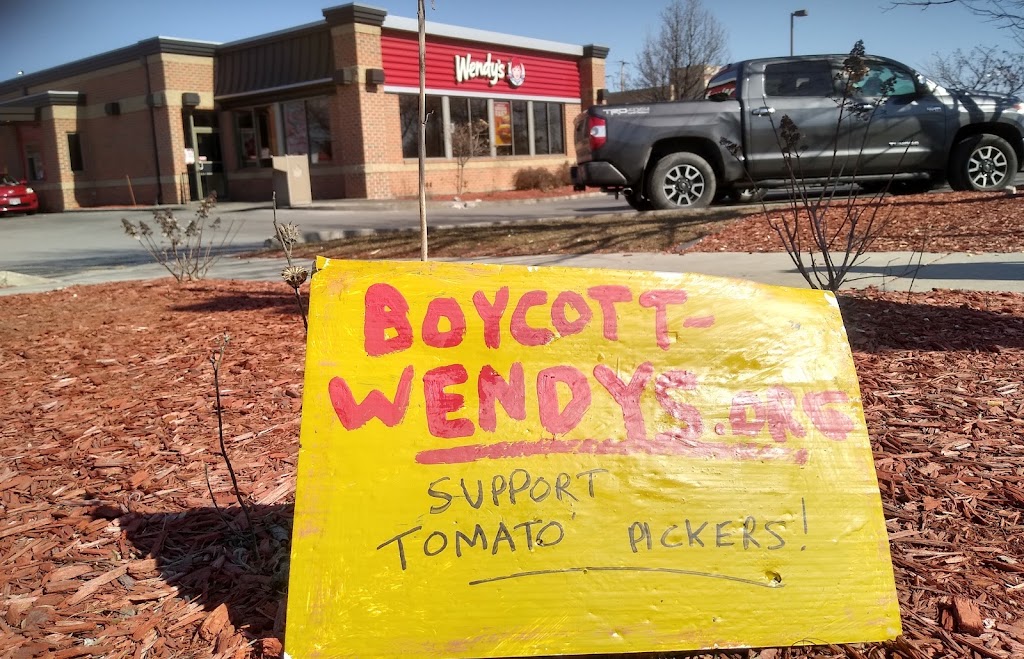 Wendy's
TRD
BOYCOTT-
WENDYS.ORG
SUPPORT
TOMATO PICKERS!